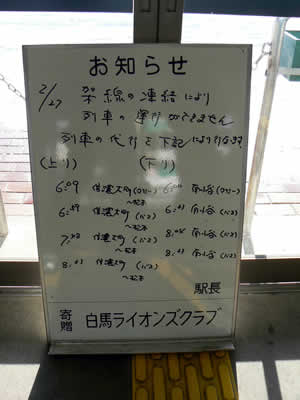 お知らせ
2/27 架線の凍結により
列車の運行ができません
列車の代行を下記により行います
(上り) (下り)
6:09 信濃大町(タクシー) 南小谷(タクシー)
〜松本
6:59 信濃大町(バス) 南小谷(バス)
〜松本
信濃大町(バス) 南小谷(バス)
〜松本
信濃大町(バス) 南小谷(バス)
〜松本
駅長
寄贈 白馬ライオンズクラブ